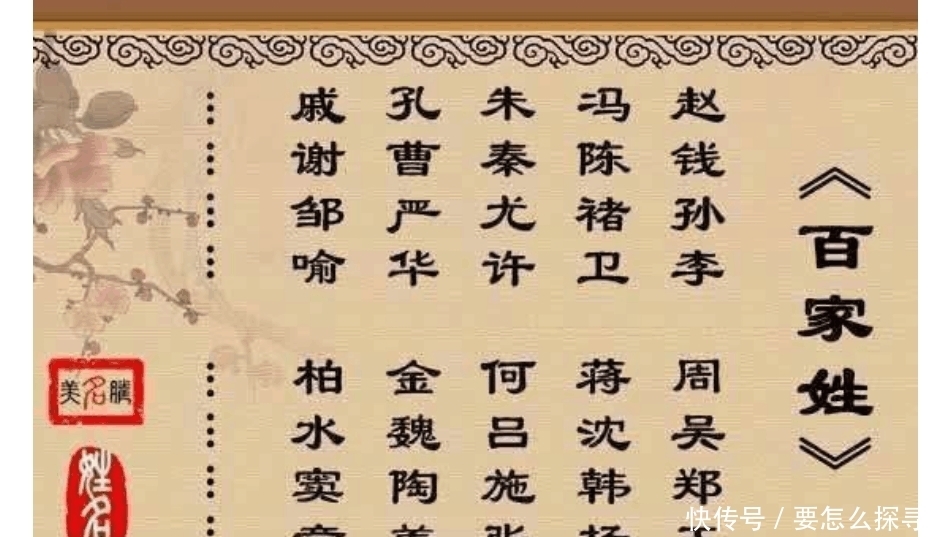 《百家姓》
赵钱孙李
周吴郑
冯陈褚卫
蒋沈韩
朱秦尤许
何吕施
孔曹严华
金魏陶
戚谢邹喻
柏水窦
美名腾
姓名
快传号 / 要怎么探寻